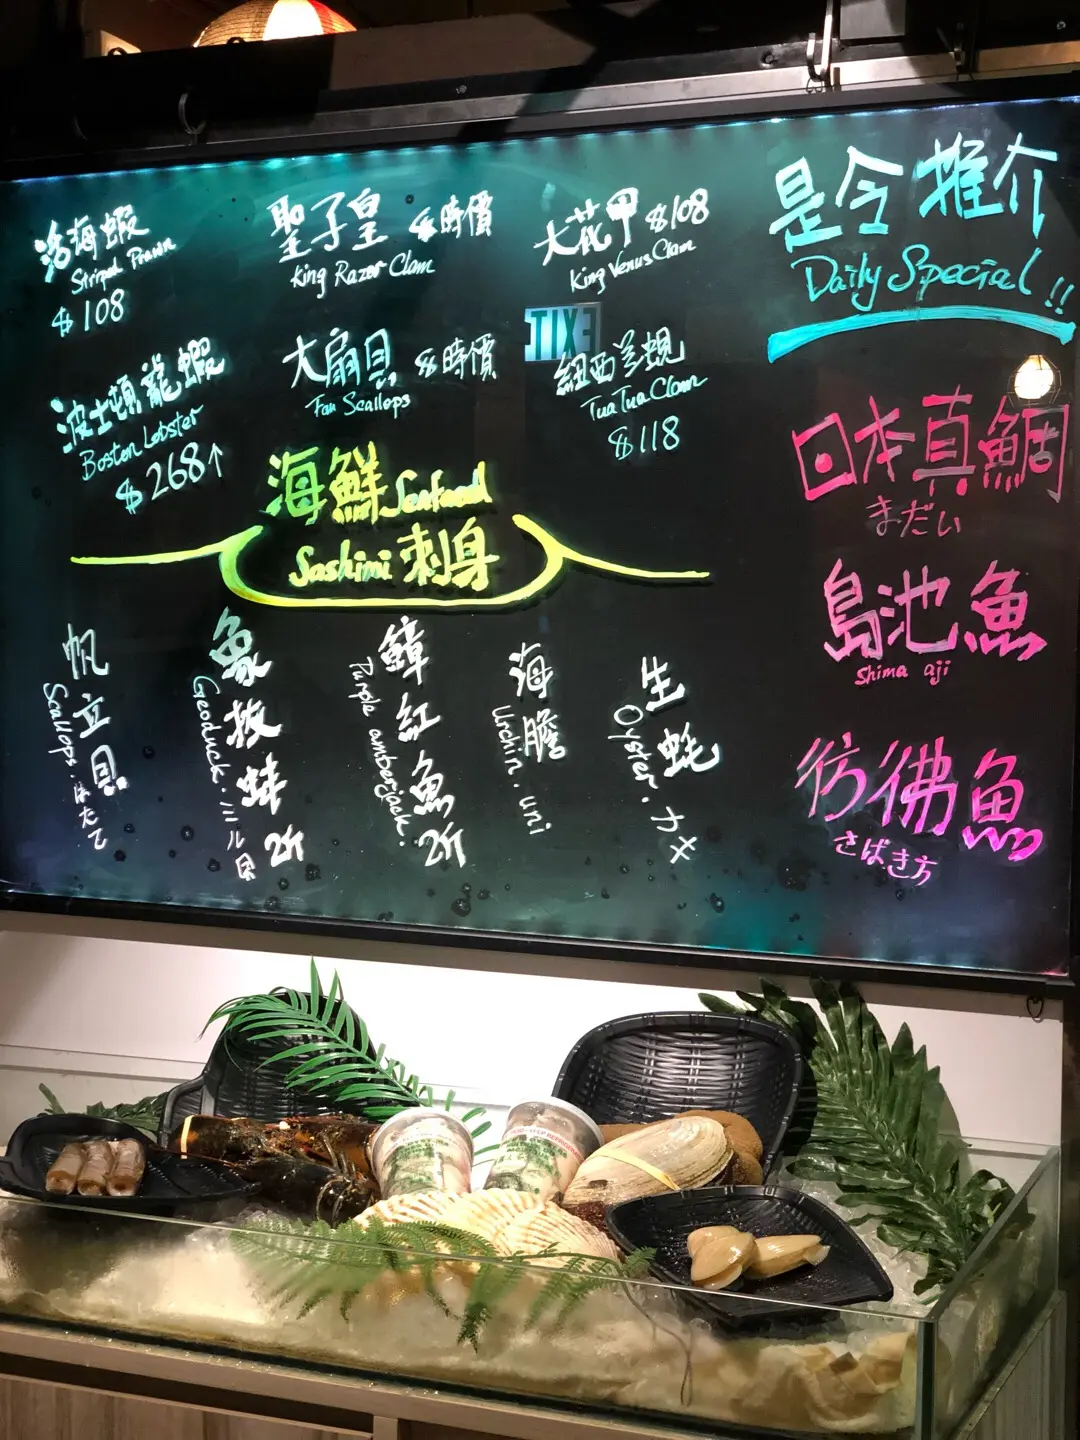 海蝦
Striped Prawn
$108
聖子皇 $時價
King Razor Clam
大花甲 $108
King Venus Clam
是令推介
Daily Special!!
波士頓龍蝦
Boston Lobster
$268↑
大扇貝 $時價
Fan Scallops
EXIT
紐西兰蜆
Tua Tua Clam
$118
海鮮 Seafood
Sashimi 刺身
帆立貝
Scallops.ほたて
象拔蚌 2斤
Geoduck.ミル貝
鱆紅魚 2斤
Purple amberjack.
海膽
Urchin.uni
生蚝
Oyster.カキ
日本真鯛
まだい
島池魚
Shima aji
彷彿魚
さばき方